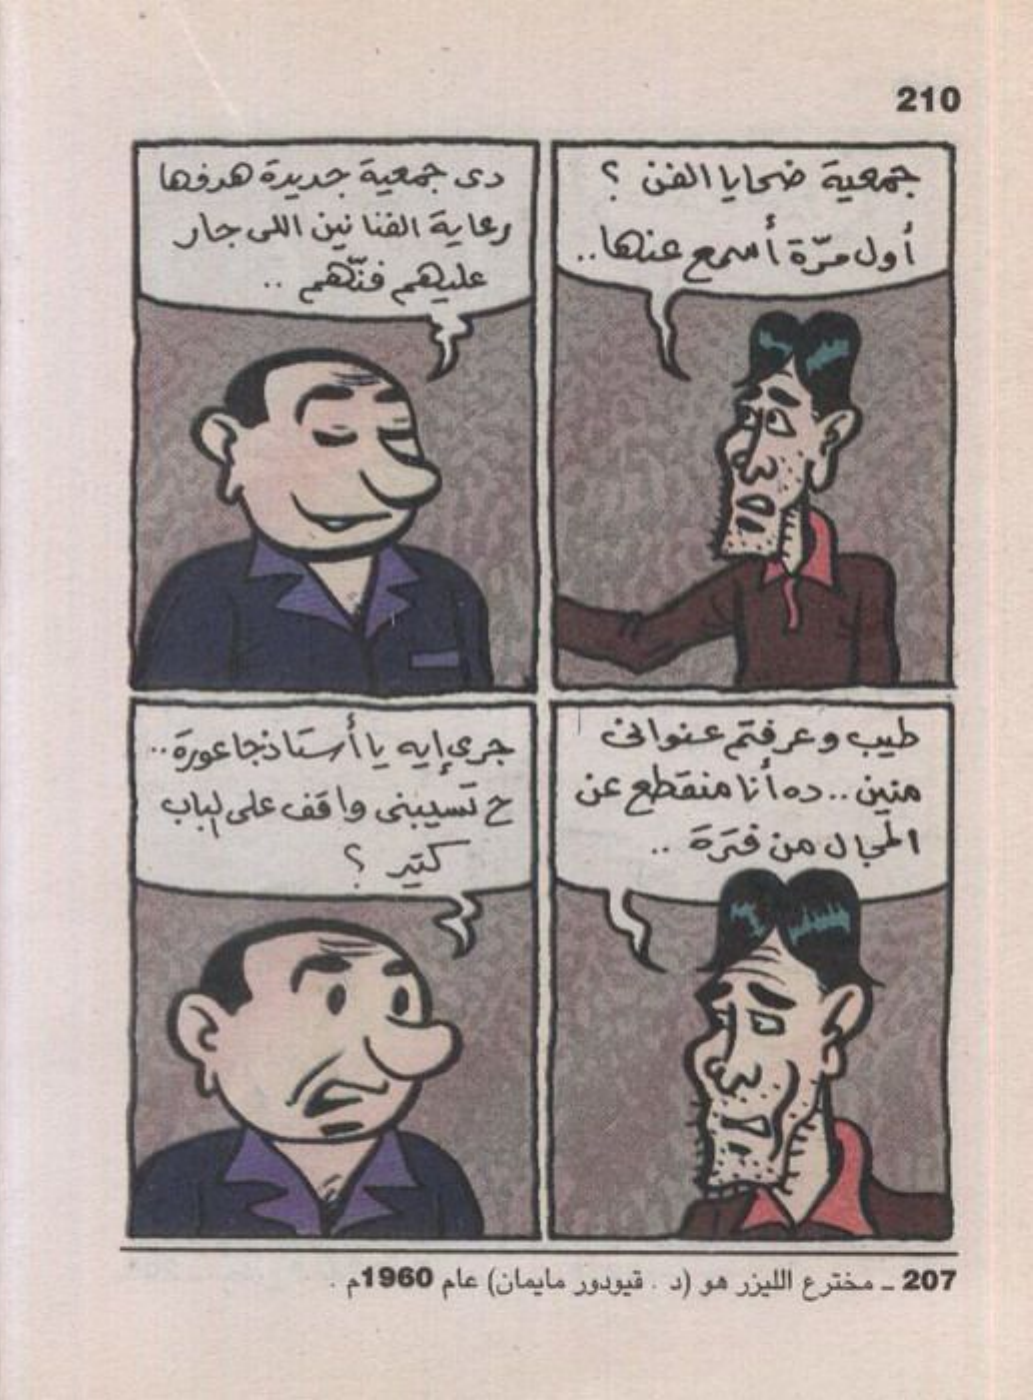 210
جمعية ضحايا الفن ؟
أول مرّة أسمع عنها..
دى جمعية جديدة هدفها
رعاية الفنانين اللى جار
عليهم فنّهم ..
طيب وعرفتم عنوانى
منين .. ده أنا منقطع عن
المجال من فترة ..
جرى إيه يا أستاذ جاعورة..
ح تسيبنى واقف على لباب
كتير ؟
207 ـ مخترع الليزر هو (د . قيودور مايمان) عام 1960م .